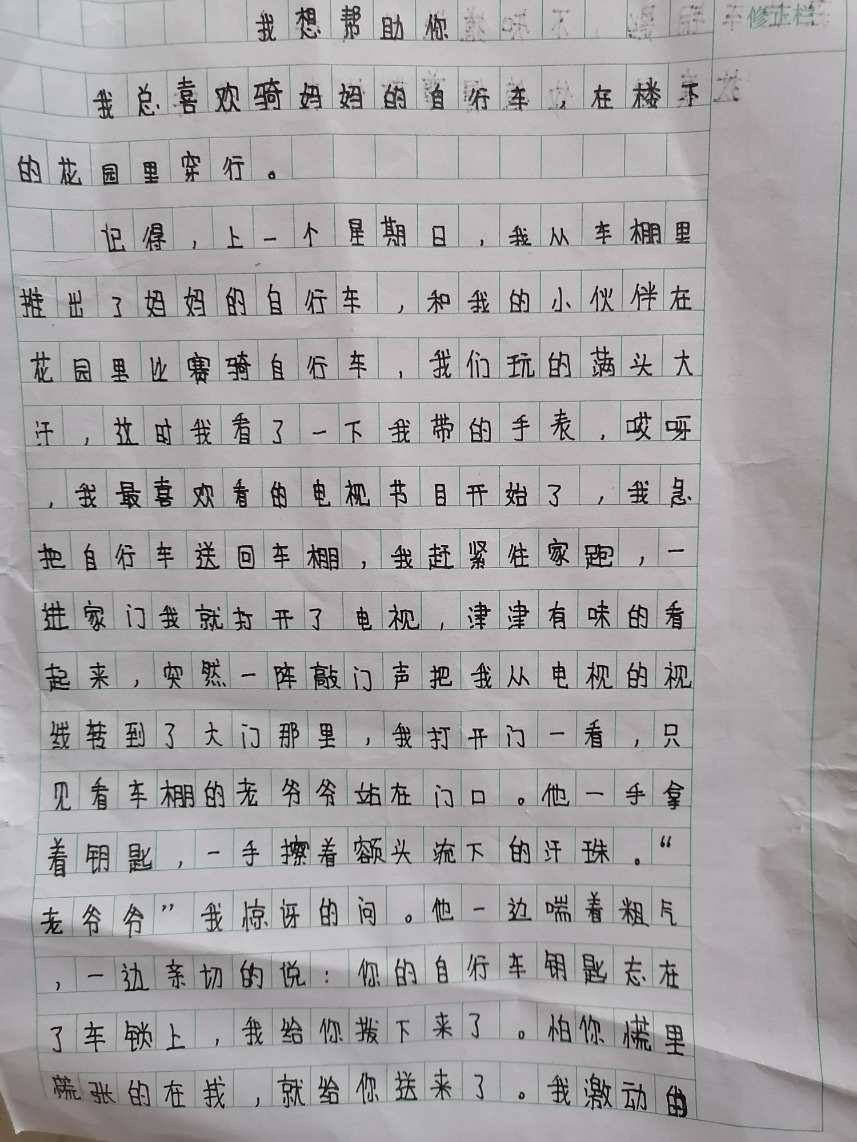 我想帮助你
修正栏
我总喜欢骑妈妈的自行车，在楼下
的花园里穿行。
记得，上一个星期日，我从车棚里
推出了妈妈的自行车，和我的小伙伴在
花园里比赛骑自行车，我们玩的满头大
汗，这时我看了一下我带的手表，哎呀
，我最喜欢看的电视节目开始了，我急
把自行车送回车棚，我赶紧往家跑，一
进家门我就打开了电视，津津有味的看
起来，突然一阵敲门声把我从电视的视
线转到了大门那里，我打开门一看，只
见看车棚的老爷爷站在门口。他一手拿
着钥匙，一手擦着额头流下的汗珠。“
老爷爷”我惊讶的问。他一边喘着粗气
，一边亲切的说：你的自行车钥匙忘在
了车锁上，我给你拨下来了。怕你慌里
慌张的在找，就给你送来了。我激动的